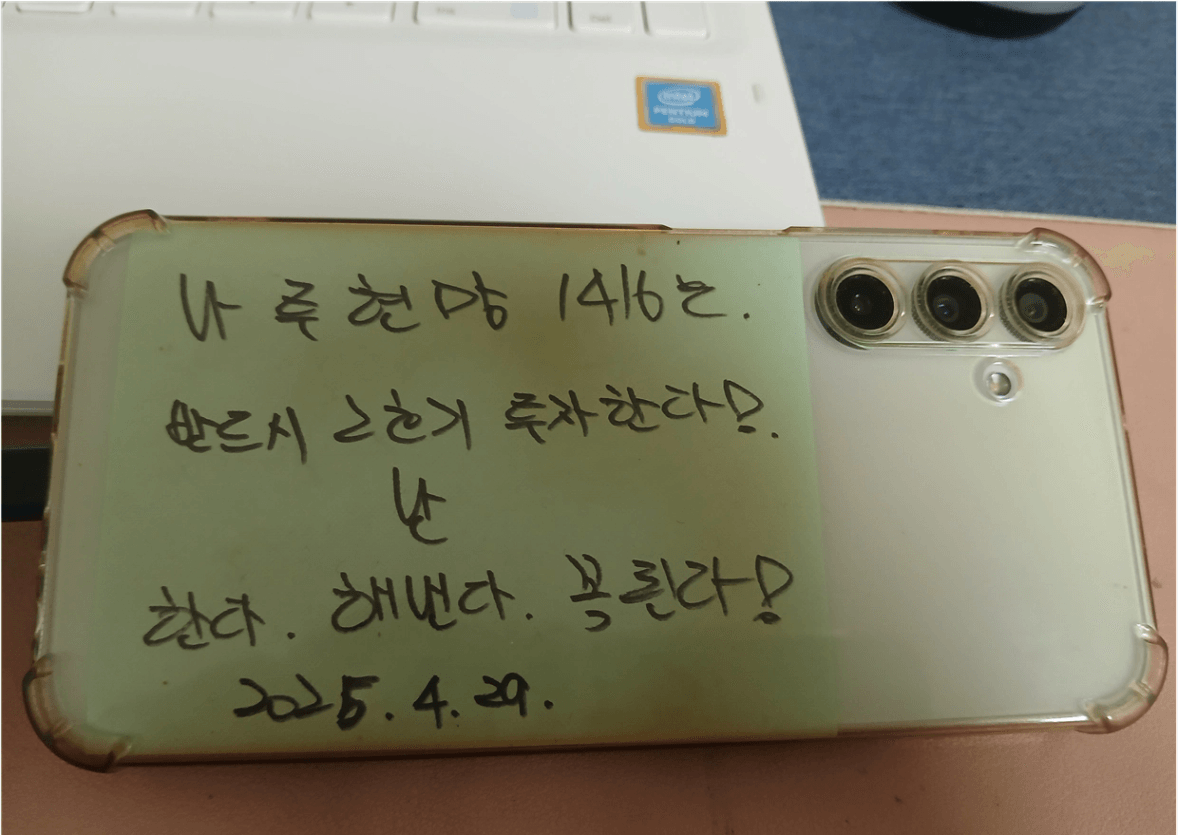 intel
PENTIUM
GOLD
나 루현맘 1416는.
반드시 2한기 투자한다!.
난
한다. 해낸다. 꼭 된다!
2025.4.29.